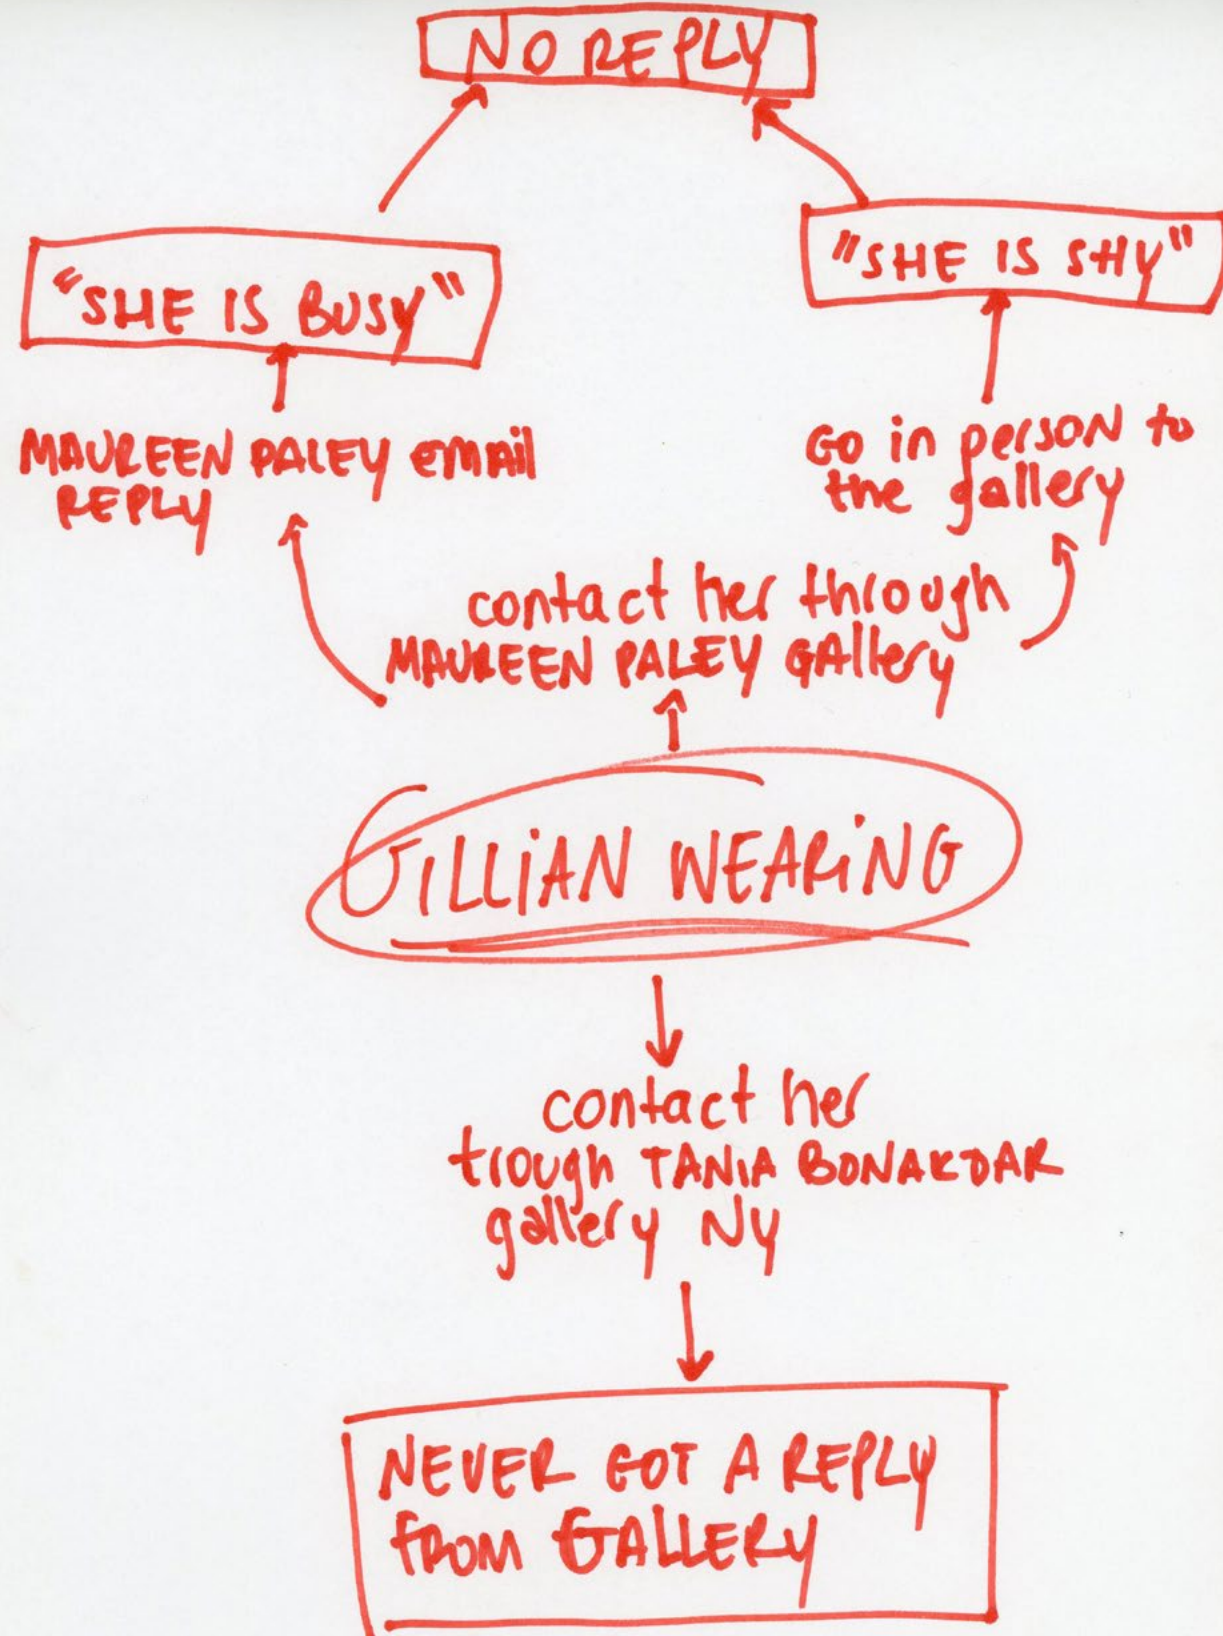 NO REPLY
"SHE IS BUSY"
"SHE IS SHY"
MAUREEN PALEY email
REPLY
Go in person to
the gallery
contact her through
MAUREEN PALEY GAllery
GILLIAN WEARING
contact her
trough TANIA BONAKDAR
gallery NY
NEVER GOT A REPLY
FROM GALLERY